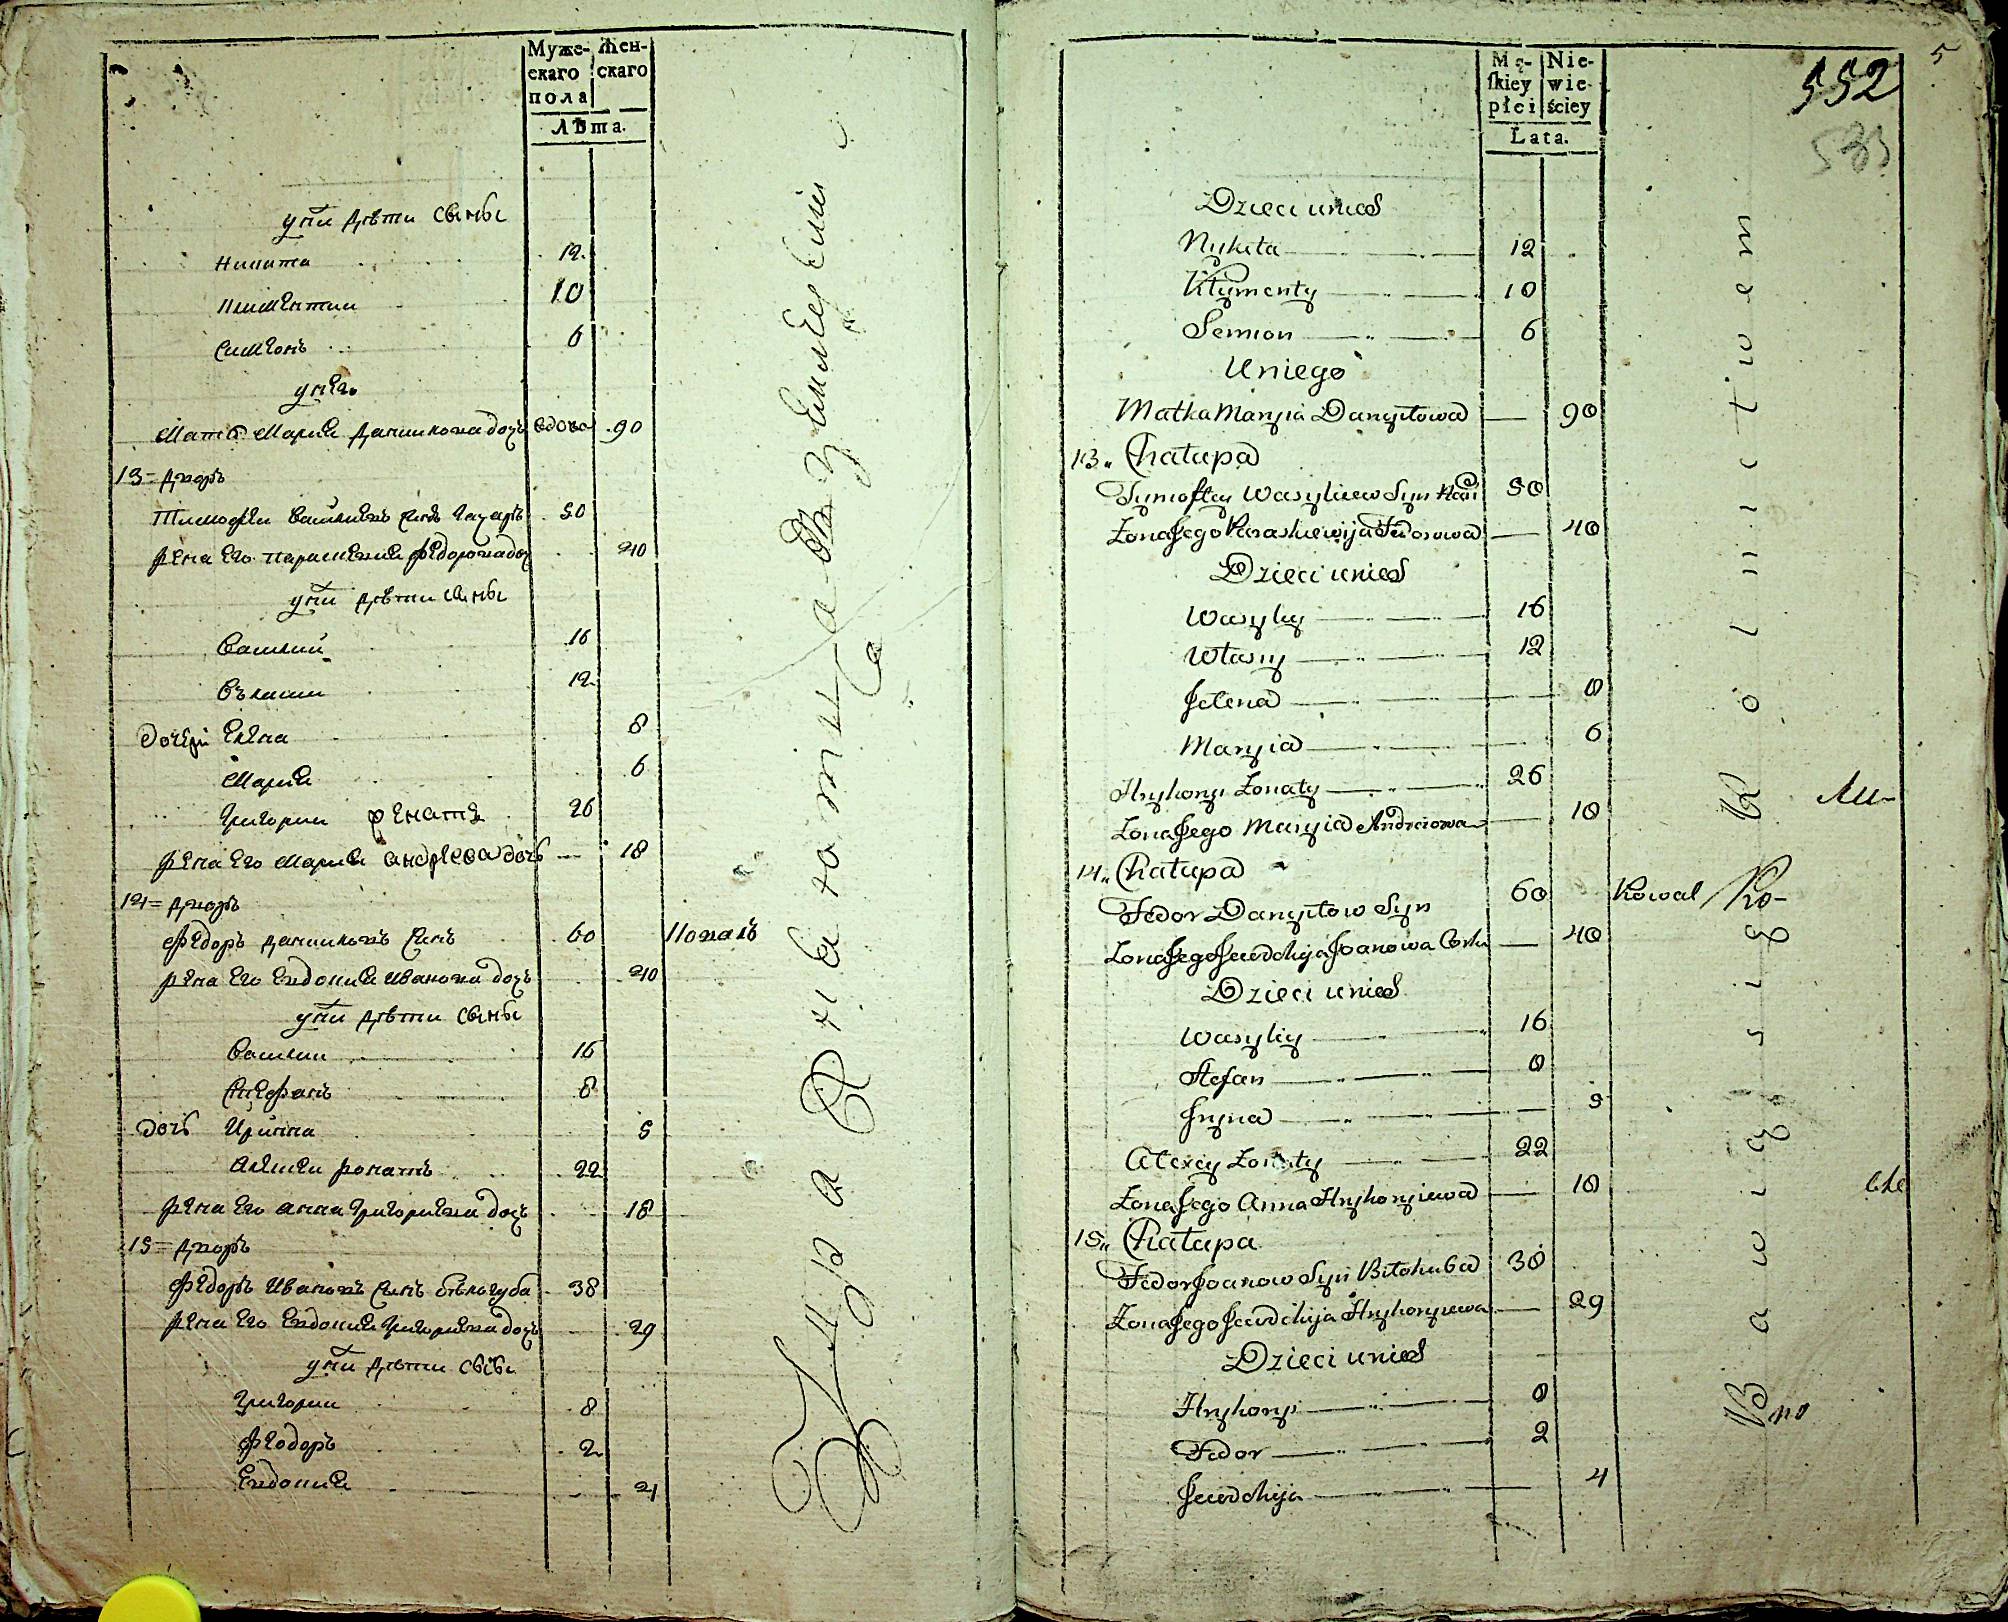 Муже-
скаго
пола
Жен-
скаго
Лѣта.
у нѣи дѣти сыны
Никита 12
Климентии 10
Симеонъ 6
у него
Мать Мария Данилова дочь вдова 90
13 = дворъ
Тимофеи Василиевъ синъ 50
жена его Параскевия Федорова доч 40
у нѣи дѣти сыны
Василии 16
Въласии 12
дочери Елена 8
Мария 6
Григории женатъ 26
жена его Мария андреева дочь 18
14 = дворъ
Федоръ Даниловъ синъ 60 Коваль
жена его Евдокия Иванова дочь 40
у нѣи дѣти сыны
Василии 16
Стефанъ 8
дочь Иринна 5
Алексеи жонатъ 22
жена его анна Григориева дочь 18
15 = дворъ
Федоръ Ивановъ синъ бѣлогуба 38
жена его Евдокия Григориева дочь 29
у нѣи дѣти сыны
Григории 8
Феодоръ 2
Евдокия 4
Mę-
skiey
płci
Nie-
wie-
ściey
Lata.
552
533
5
Dzieci u nich
Nykita 12
Kłymenty 10
Semion 6
U niego
Matka Maryia Danyłowa 90
13„ Chałupa
Tymoftey Wasyliiew Syn 50
Żona Jego Paraskiewija Fedorowa 40
Dzieci u nich
Wasyliy 16
Własiy 12
Jelena 8
Maryia 6
Hryhory Żonaty 26
Żona Jego Maryia Andreiowa 18
14„ Chałupa
Fedor Danyłow Syn 60 Kowal
Żona Jego Jewdokija Joanowa Corka 40
Dzieci u nich
Wasyliy 16
Stefan 8
Iryna 5
Alexey Żonaty 22
Żona Jego Anna Hryhoryiewa 18
15„ Chałupa
Fedor Joanow Syn Biłohuba 38
Żona Jego Jewdokija Hryhoryiewa 29
Dzieci u nich
Hryhory 8
Fedor 2
Jewdokija 4
Bawią się Rolnictwem